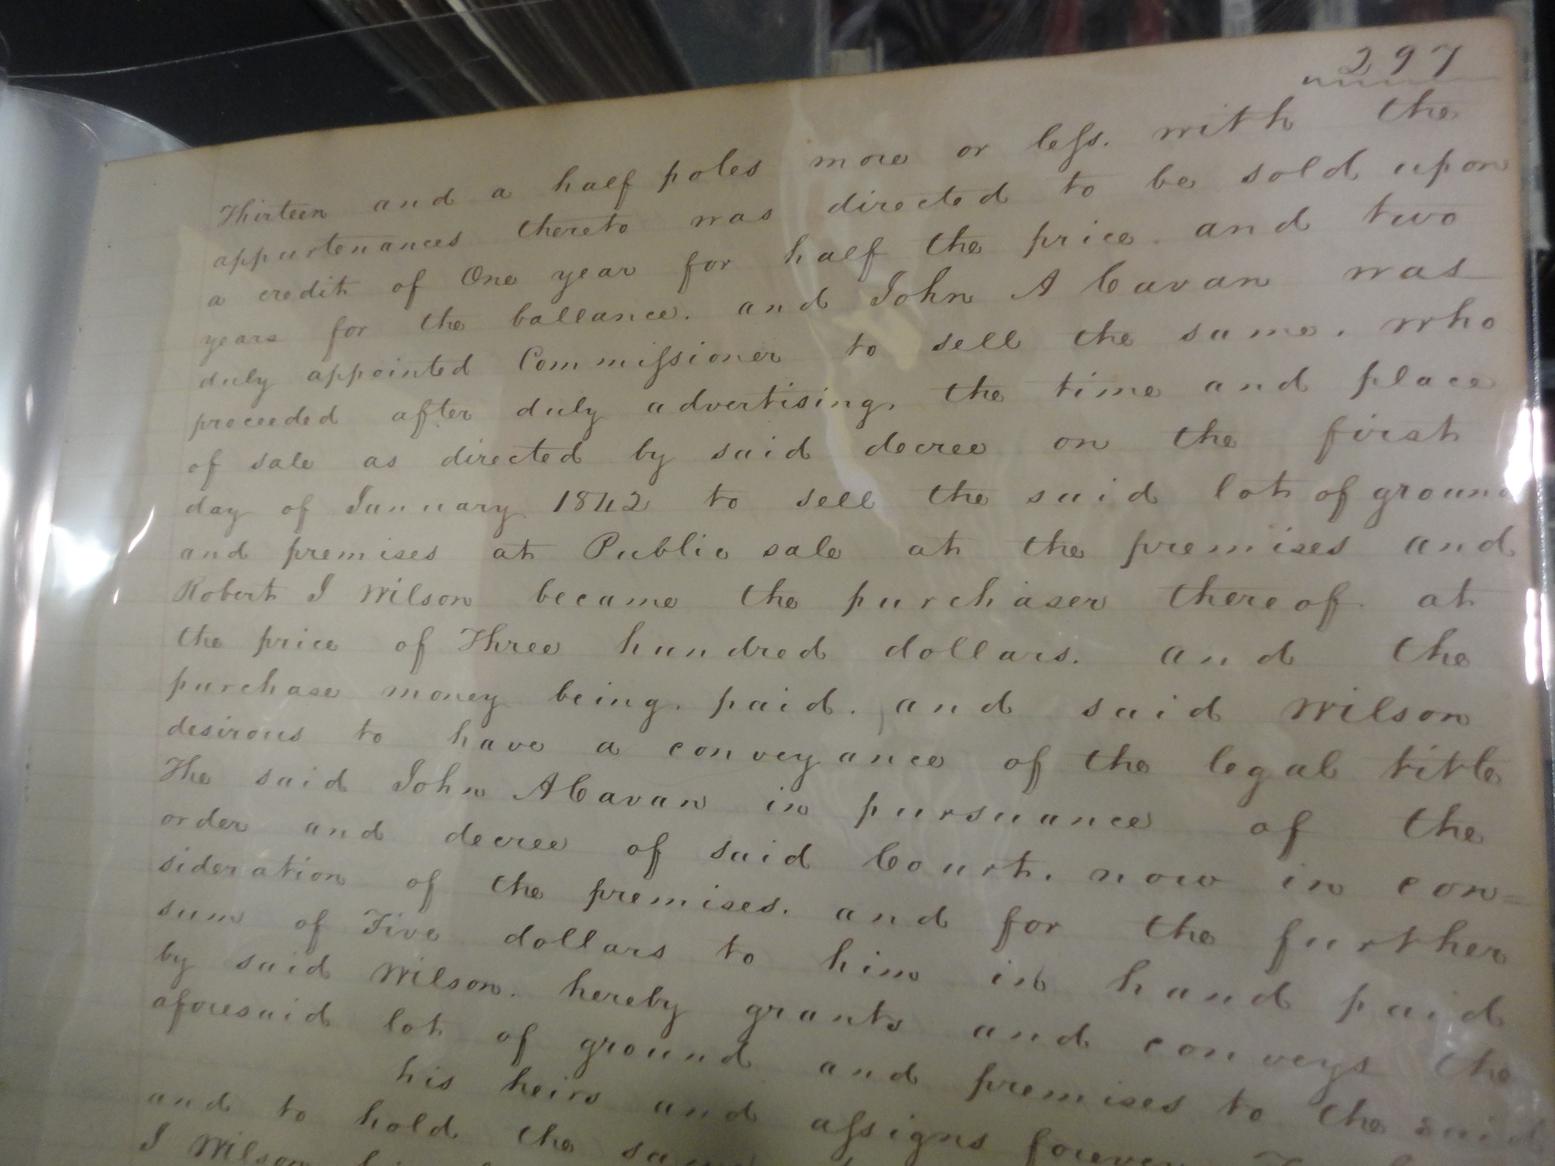 297
Thirteen and a half poles more or less. with the
appurtenances thereto was directed to be sold upon
a credit of One year for half the price. and two
years for the ballance. and John A Cavan was
duly appointed Commissioner to sell the same. who
proceeded after duly advertising, the time and place
of sale as directed by said decree on the first
day of January 1842 to sell the said lot of ground
and premises at Public sale at the premises and
Robert J Wilson became the purchaser thereof at
the price of Three hundred dollars. and the
purchase money being. paid. and said Wilson
desirous to have a conveyance of the legal title
The said John A Cavan in pursuance of the
order and decree of said Court. now in con=
sideration of the premises. and for the further
sum of Five dollars to him in hand paid
by said Wilson. hereby grants and conveys the
aforesaid lot of ground and premises to the said
his heirs and assigns forever
and to hold the
J Wilson